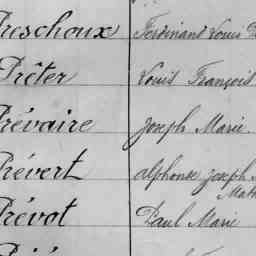 Preschoux Ferdinand Louis
Prêter Louis François
Prévaire Joseph Marie
Prévert Alphonse Joseph
Prévot Paul Marie